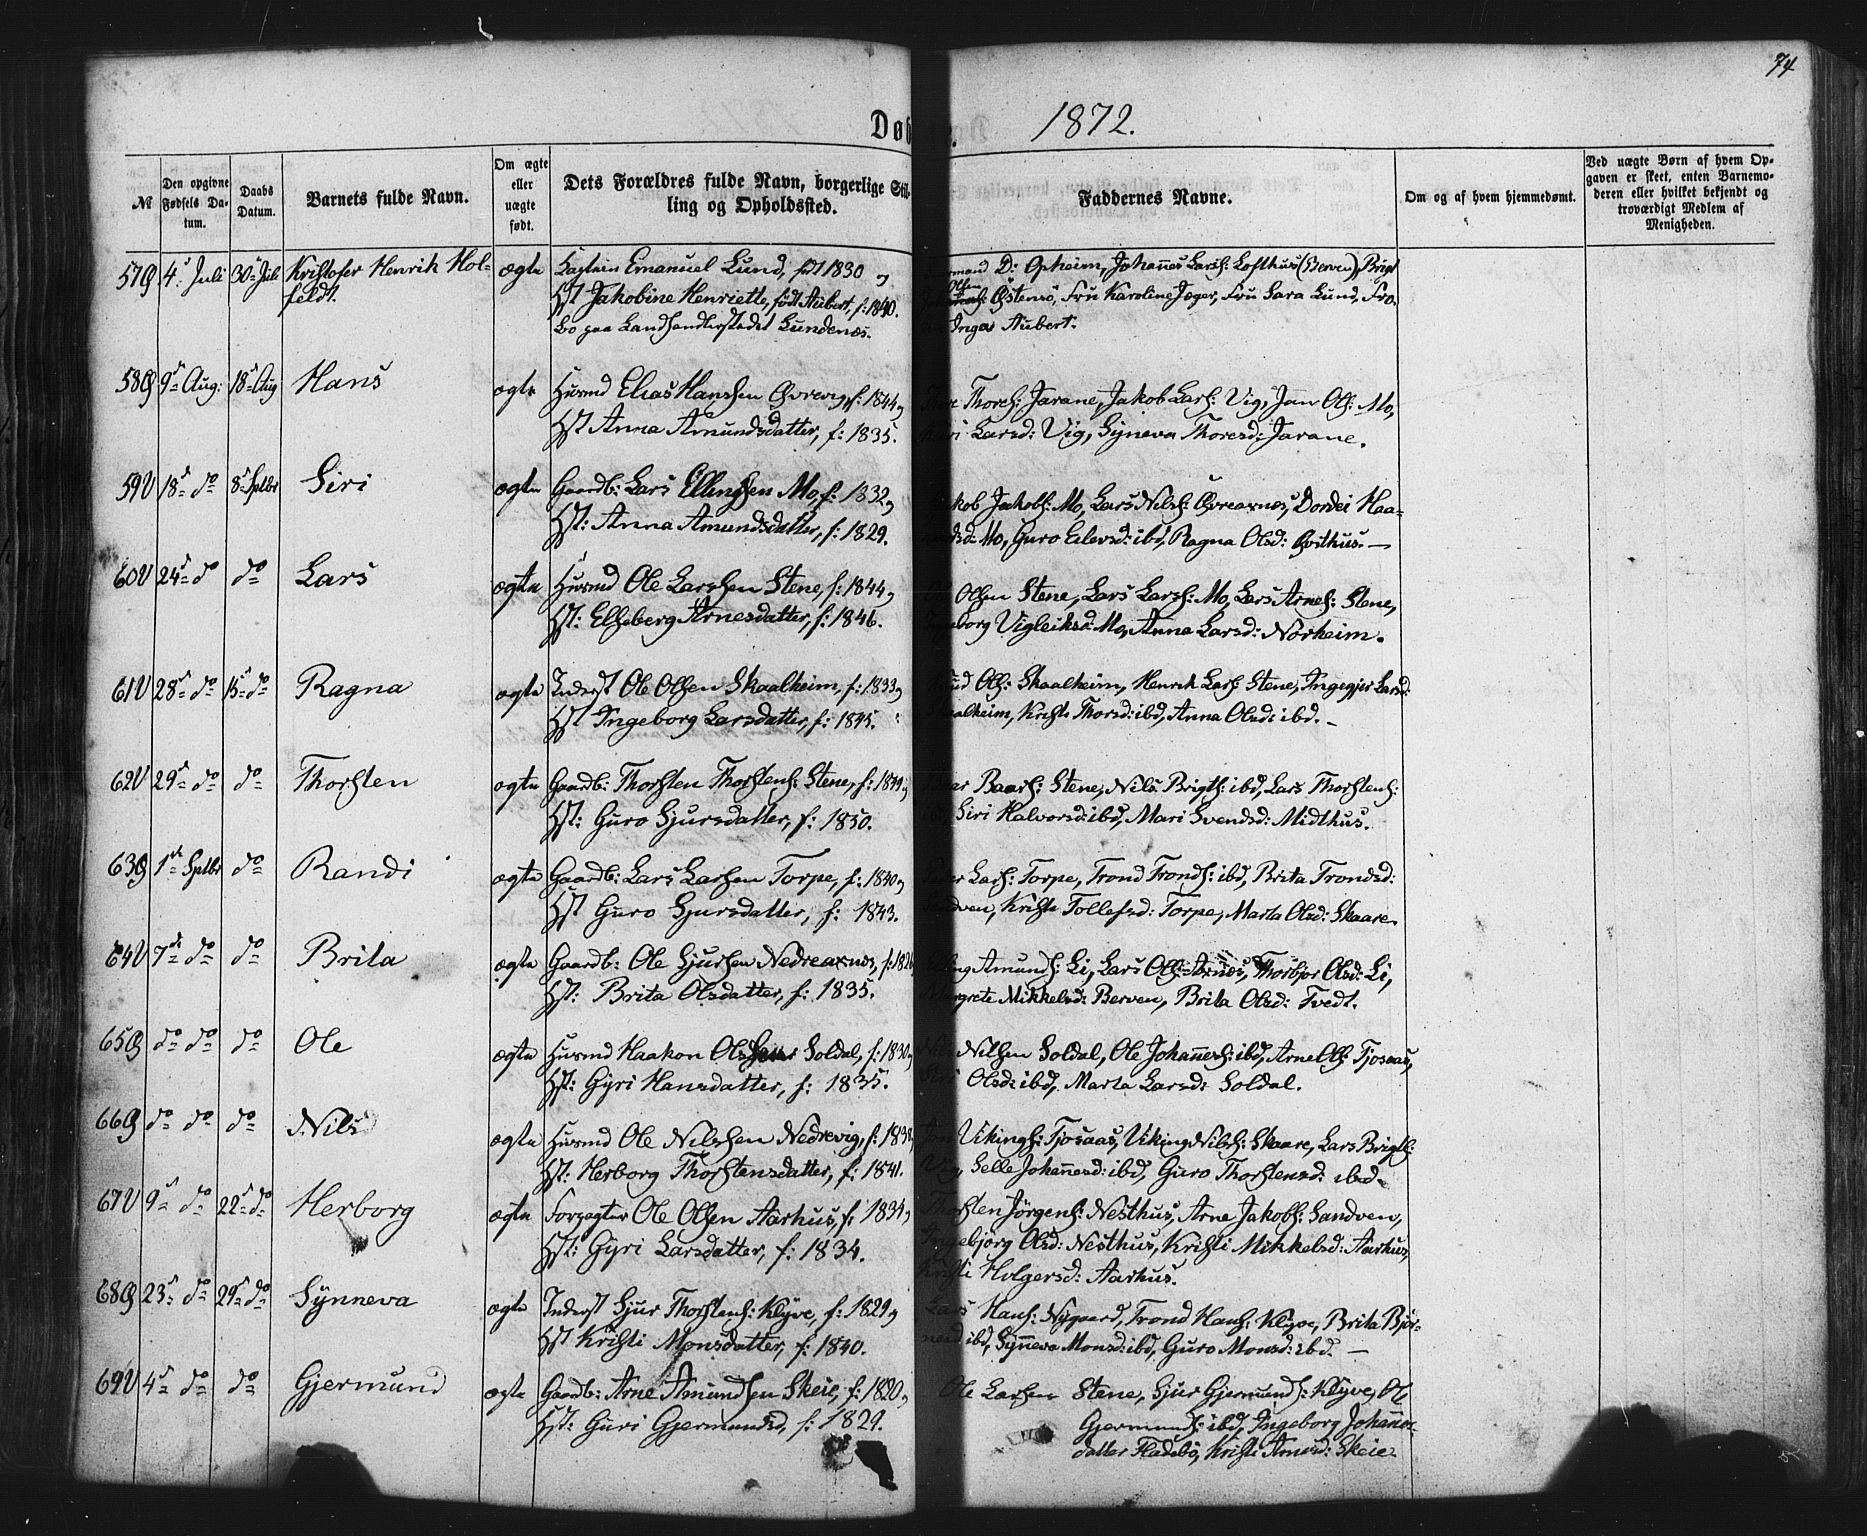 74
Døb
1872.
№
Den opgivne Fødsels Datum.
Daabs Datum.
Barnets fulde Navn.
Om ægte eller uægte født.
Dets Forældres fulde Navn, borgerlige Stilling og Opholdssted.
Faddernes Navne.
Om og af hvem hjemmedømt.
Ved uægte Børn af hvem Opgaven er skeet, enten Barnemoderen eller hvilket bekjendt og troværdigt Medlem af Menigheden.
57 4. Juli 30 Juli Kristofer Henrik Hol- ægte Captein Emanuel Lund, født 1830 og D: Opheim, Johannes Larss: Lofthus (Berven), Brigt
feldt. Hst Jakobine Henriette, født Aubert, f: 1840. Olsen Østensø, Fru Karoline Jæger, Fru Sara Lund, Frø-
Bo paa Landhandlerstedet Lundenæs. Inga Aubert.
58 9 Aug: 18 Aug Hans ægte Husmd Elias Hanssen Øvrevig, f: 1844, Thoress: Jarane, Jakob Larss: Vig, Jan Ols: Mo,
Hst Anna Amundsdatter, f: 1835. Larsd: Vig, Synneva Thoresd: Jarane.
59 V 18 do 8 Sptbr Siri ægte Gaardb: Lars Ellingsen Mo, f: 1832, Jakobs: Mo, Lars Nilss: Øvreaxnes, Dordei Haa-
Hst: Anna Amundsdatter, f: 1829. Mo, Guro Eilevsd: ibd, Ragna Olsd: Qvithus. —
60 V 24 do do Lars ægte Husmd Ole Larssen Stene, f: 1844, Olsen Stene, Lars Larss: Mo, Lars Arnes: Stene,
Hst: Elseberg Arnesdatter, f: 1846. Vigleiksd: Mo, Anna Larsd: Norheim.
61 V 28 do 15 do Ragna ægte Inderst Ole Olsen Skaalheim, f: 1833, Ols: Skaalheim, Henrik Larss Stene, Ingegjer Larsd:
Hst Ingeborg Larsdatter, f: 1845. Kristi Thorsd: ibd, Anna Olsd: ibd. —
62 V 29 do do Thorsten ægte Gaardb: Thorsten Thorstens: Stene, f: 1849, Baars: Stene, Nils Brigts: ibd, Lars Thorstens:
Hst: Guro Sjursdatter, f: 1850. Siri Halvorsd: ibd, Mari Svendsd: Midthus.
63 1 Sptbr do Randi ægte Gaardb: Lars Larssen Torpe, f: 1840, Larss: Torpe, Trond Tronds: ibd, Brita Trondsd:
Hst Guro Sjursdatter, f: 1843. Kristi Tollefsd: Torpe, Marta Olsd: Skaare.
64 V 7 do do Brita ægte Gaardb: Ole Sjursen Nedreaxnes, f: 1826 Amunds: Li, Lars Ols: Axnes, Thorbjør Olsd: Li,
Hst: Brita Olsdatter, f: 1835. Margrete Mikkelsd: Berven, Brita Olsd: Tvedt.
65 do do do Ole ægte Husmd Haakon Olssen Soldal, f: 1830, Nilssen Soldal, Ole Johanness: ibd, Arne Ols: Tjosaas,
Hst: Gyri Hansdatter, f: 1835. Olsd: ibd, Marta Larsd: Soldal.
66 do do do Nils ægte Husmd Ole Nilssen Nedrevig, f: 1838, Vikings: Tjosaas, Viking Nilss: Skaare, Lars Brigts:
Hst: Herborg Thorstensdatter, f: 1841. Vig, Selle Johannesd: ibd, Guro Thorstensd: ibd.
67 V 9 do 22 do Herborg ægte Forpagter Ole Olsen Aarhus, f: 1834, Thorsten Jørgens: Nesthus, Arne Jakobs: Sandven,
Hst: Gyri Larsdatter, f: 1834. Ingebjørg Olsd: Nesthus, Kristi Mikkelsd: Aarhus,
Kristi Holgersd: Aarhus.
68 23 do 29 do Synneva ægte Inderst Sjur Thorstens: Klyve, f: 1829, Lars Hanss: Nygaard, Trond Hanss: Klyve, Brita Bjør-
Hst Kristi Monsdatter, f: 1840. ibd, Synneva Monsd: ibd, Guro Monsd: ibd. —
69 V 4 do do Gjermund ægte Gaardb: Arne Amundsen Skeie, f: 1820, Ole Larssen Stene, Sjur Gjermunds: Klyve, Ol
Hst: Guri Gjermundsd, f: 1829. Gjermunds: ibd, Ingeborg Johannes-
datter Fladebø, Kristi Arnesd: Skeie